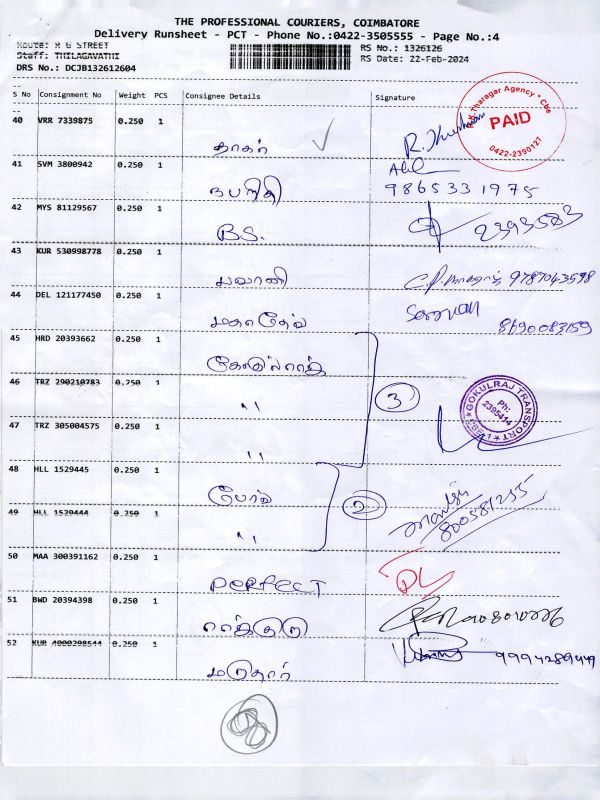 THE PROFESSIONAL COURIERS, COIMBATORE
Delivery Runsheet - PCT - Phone No.:0422-3505555 - Page No.:4
Route: R G STREET
Staff: THILAGAVATHI
DRS No.: DCJB132612604
RS No.: 1326126
RS Date: 22-Feb-2024
S No Consignment No Weight PCS Consignee Details Signature
PAID
0422-2390127
40 VRR 7339875 0.250 1
தாகர்
41 SVM 3800942 0.250 1
9865331975
42 MYS 81129567 0.250 1
B.S. 2393583
43 KUR 530998778 0.250 1
பவானி 9787043598
44 DEL 121177450 0.250 1
மகாதேவ் Saravan
8690083159
45 HRD 20393662 0.250 1
46 TRZ 290210783 0.250 1
" 3
GOKULRAJ TRANSPORT
Ph:
2395414
47 TRZ 305004575 0.250 1
"
48 HLL 1529445 0.250 1
போஸ்
49 HLL 1529444 0.250 1
" 2
50 MAA 300391162 0.250 1
PERFECT
51 BWD 20394398 0.250 1
52 KUR 4000298544 0.250 1
மருதார் 9994289449